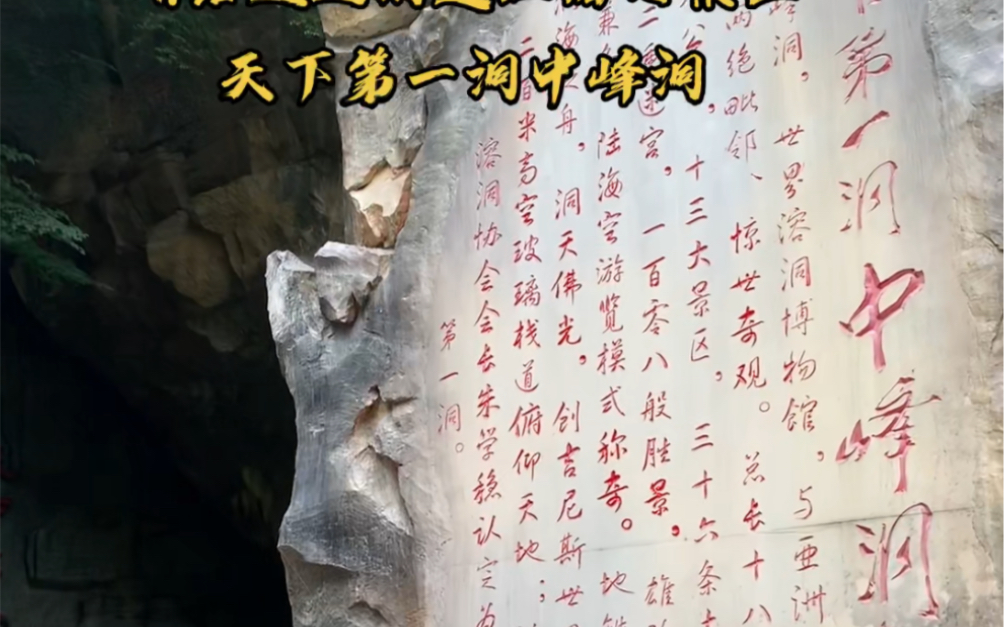 天下第一洞中峰洞
第一洞中峰洞
峰洞，世界溶洞博物馆，与亚洲
两绝毗邻、惊世奇观。总长十八
十三大景区，三十六条
迷宫，一百零八般胜景，雄
陆海空游览模式称奇。地
舟，洞天佛光，创吉尼斯世
二百米高空玻璃栈道俯仰天地；
溶洞协会会长朱学稳认定为
第一洞。